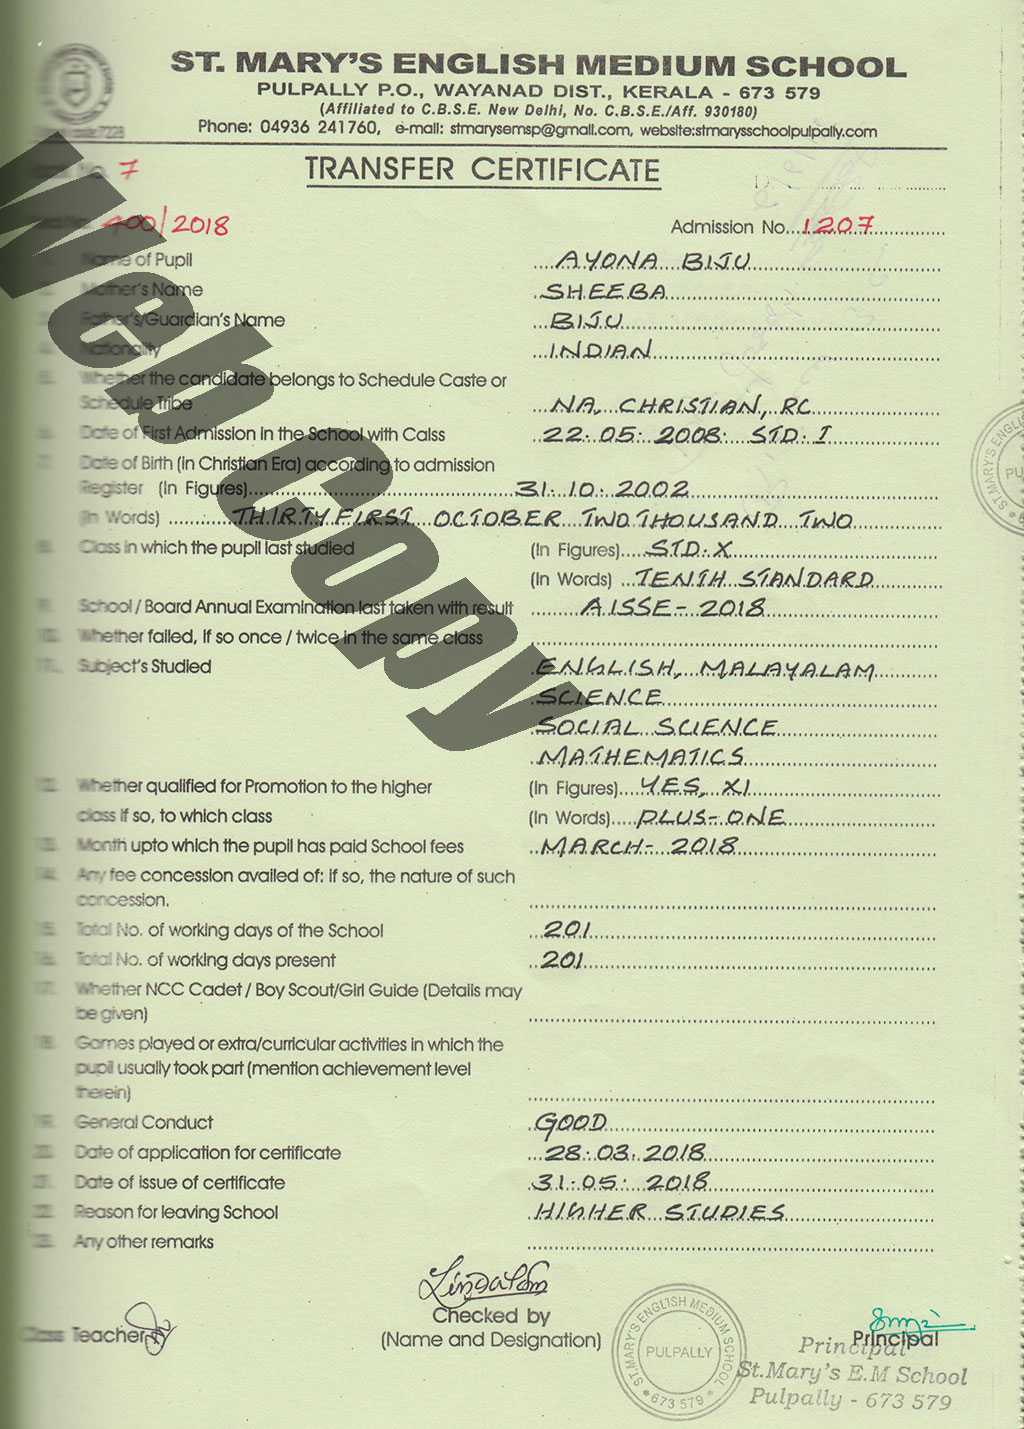 ST. MARY'S ENGLISH MEDIUM SCHOOL
PULPALLY P.O., WAYANAD DIST., KERALA - 673 579
(Affiliated to C.B.S.E. New Delhi, No. C.B.S.E./Aff. 930180)
Phone: 04936 241760, e-mail: stmarysemsp@gmail.com, website:stmarysschoolpulpally.com
No. 7
TRANSFER CERTIFICATE
400/2018 Admission No. 1207
Name of Pupil AYONA BIJU
Mother's Name SHEEBA
Father's/Guardian's Name BIJU
Nationality INDIAN
Whether the candidate belongs to Schedule Caste or
Schedule Tribe NA, CHRISTIAN, RC
Date of First Admission in the School with Calss 22.05.2008. STD. I
Date of Birth (in Christian Era) according to admission
Register (In Figures) 31.10.2002
(In Words) THIRTY FIRST OCTOBER TWO THOUSAND TWO
Class in which the pupil last studied (In Figures) STD. X
(In Words) TENTH STANDARD
School / Board Annual Examination last taken with result AISSE - 2018
10. Whether failed, if so once / twice in the same class
11. Subject's Studied ENGLISH, MALAYALAM
SCIENCE
SOCIAL SCIENCE
MATHEMATICS
12. Whether qualified for Promotion to the higher (In Figures) YES, XI
class if so, to which class (In Words) PLUS-ONE
13. Month upto which the pupil has paid School fees MARCH- 2018
14. Any fee concession availed of: if so, the nature of such
concession.
15. Total No. of working days of the School 201
16. Total No. of working days present 201
17. Whether NCC Cadet / Boy Scout/Girl Guide (Details may
be given)
18. Games played or extra/curricular activities in which the
pupil usually took part (mention achievement level
therein)
19. General Conduct GOOD
20. Date of application for certificate 28.03.2018
21. Date of issue of certificate 31.05.2018
22. Reason for leaving School HIGHER STUDIES
23. Any other remarks
Class Teacher
Checked by
(Name and Designation)
Principal
Principal
St.Mary's E.M School
Pulpally - 673 579
ST.MARY'S ENGLISH MEDIUM SCHOOL
PULPALLY
673 579
Web Copy